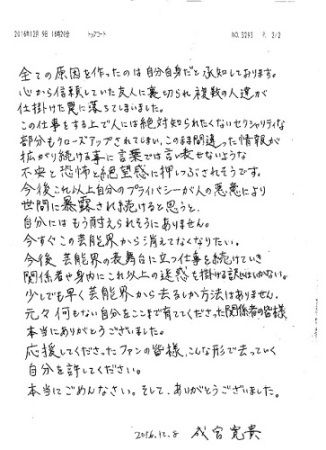 2016年12月 9日 16時20分 トップコート NO.3293 P. 2/2
全ての原因を作ったのは自分自身だと承知しております。
心から信頼していた友人に裏切られ複数の人達が
仕掛けた罠に落ちてしまいました。
この仕事をする上で人には絶対知られたくないセクシャリティな
部分もクローズアップされてしまい、このまま間違った情報が
拡がり続ける事に言葉では言い表せないような
不安と恐怖と絶望感に押しつぶされそうです。
今後これ以上自分のプライバシーが人の悪意により
世間に暴露され続けると思うと、
自分にはもう耐えられそうにありません。
今すぐこの芸能界から消えてなくなりたい。
今後芸能界の表舞台に立つ仕事を続けていき
関係者や身内にこれ以上の迷惑を掛ける訳にはいかない。
少しでも早く芸能界から去るしか方法はありません。
元々何もない自分をここまで育ててくださった関係者の皆様
本当にありがとうございました。
応援してくださったファンの皆様、こんな形で去っていく
自分を許してください。
本当にごめんなさい。そして、ありがとうございました。
2016.12.8 成宮寛貴